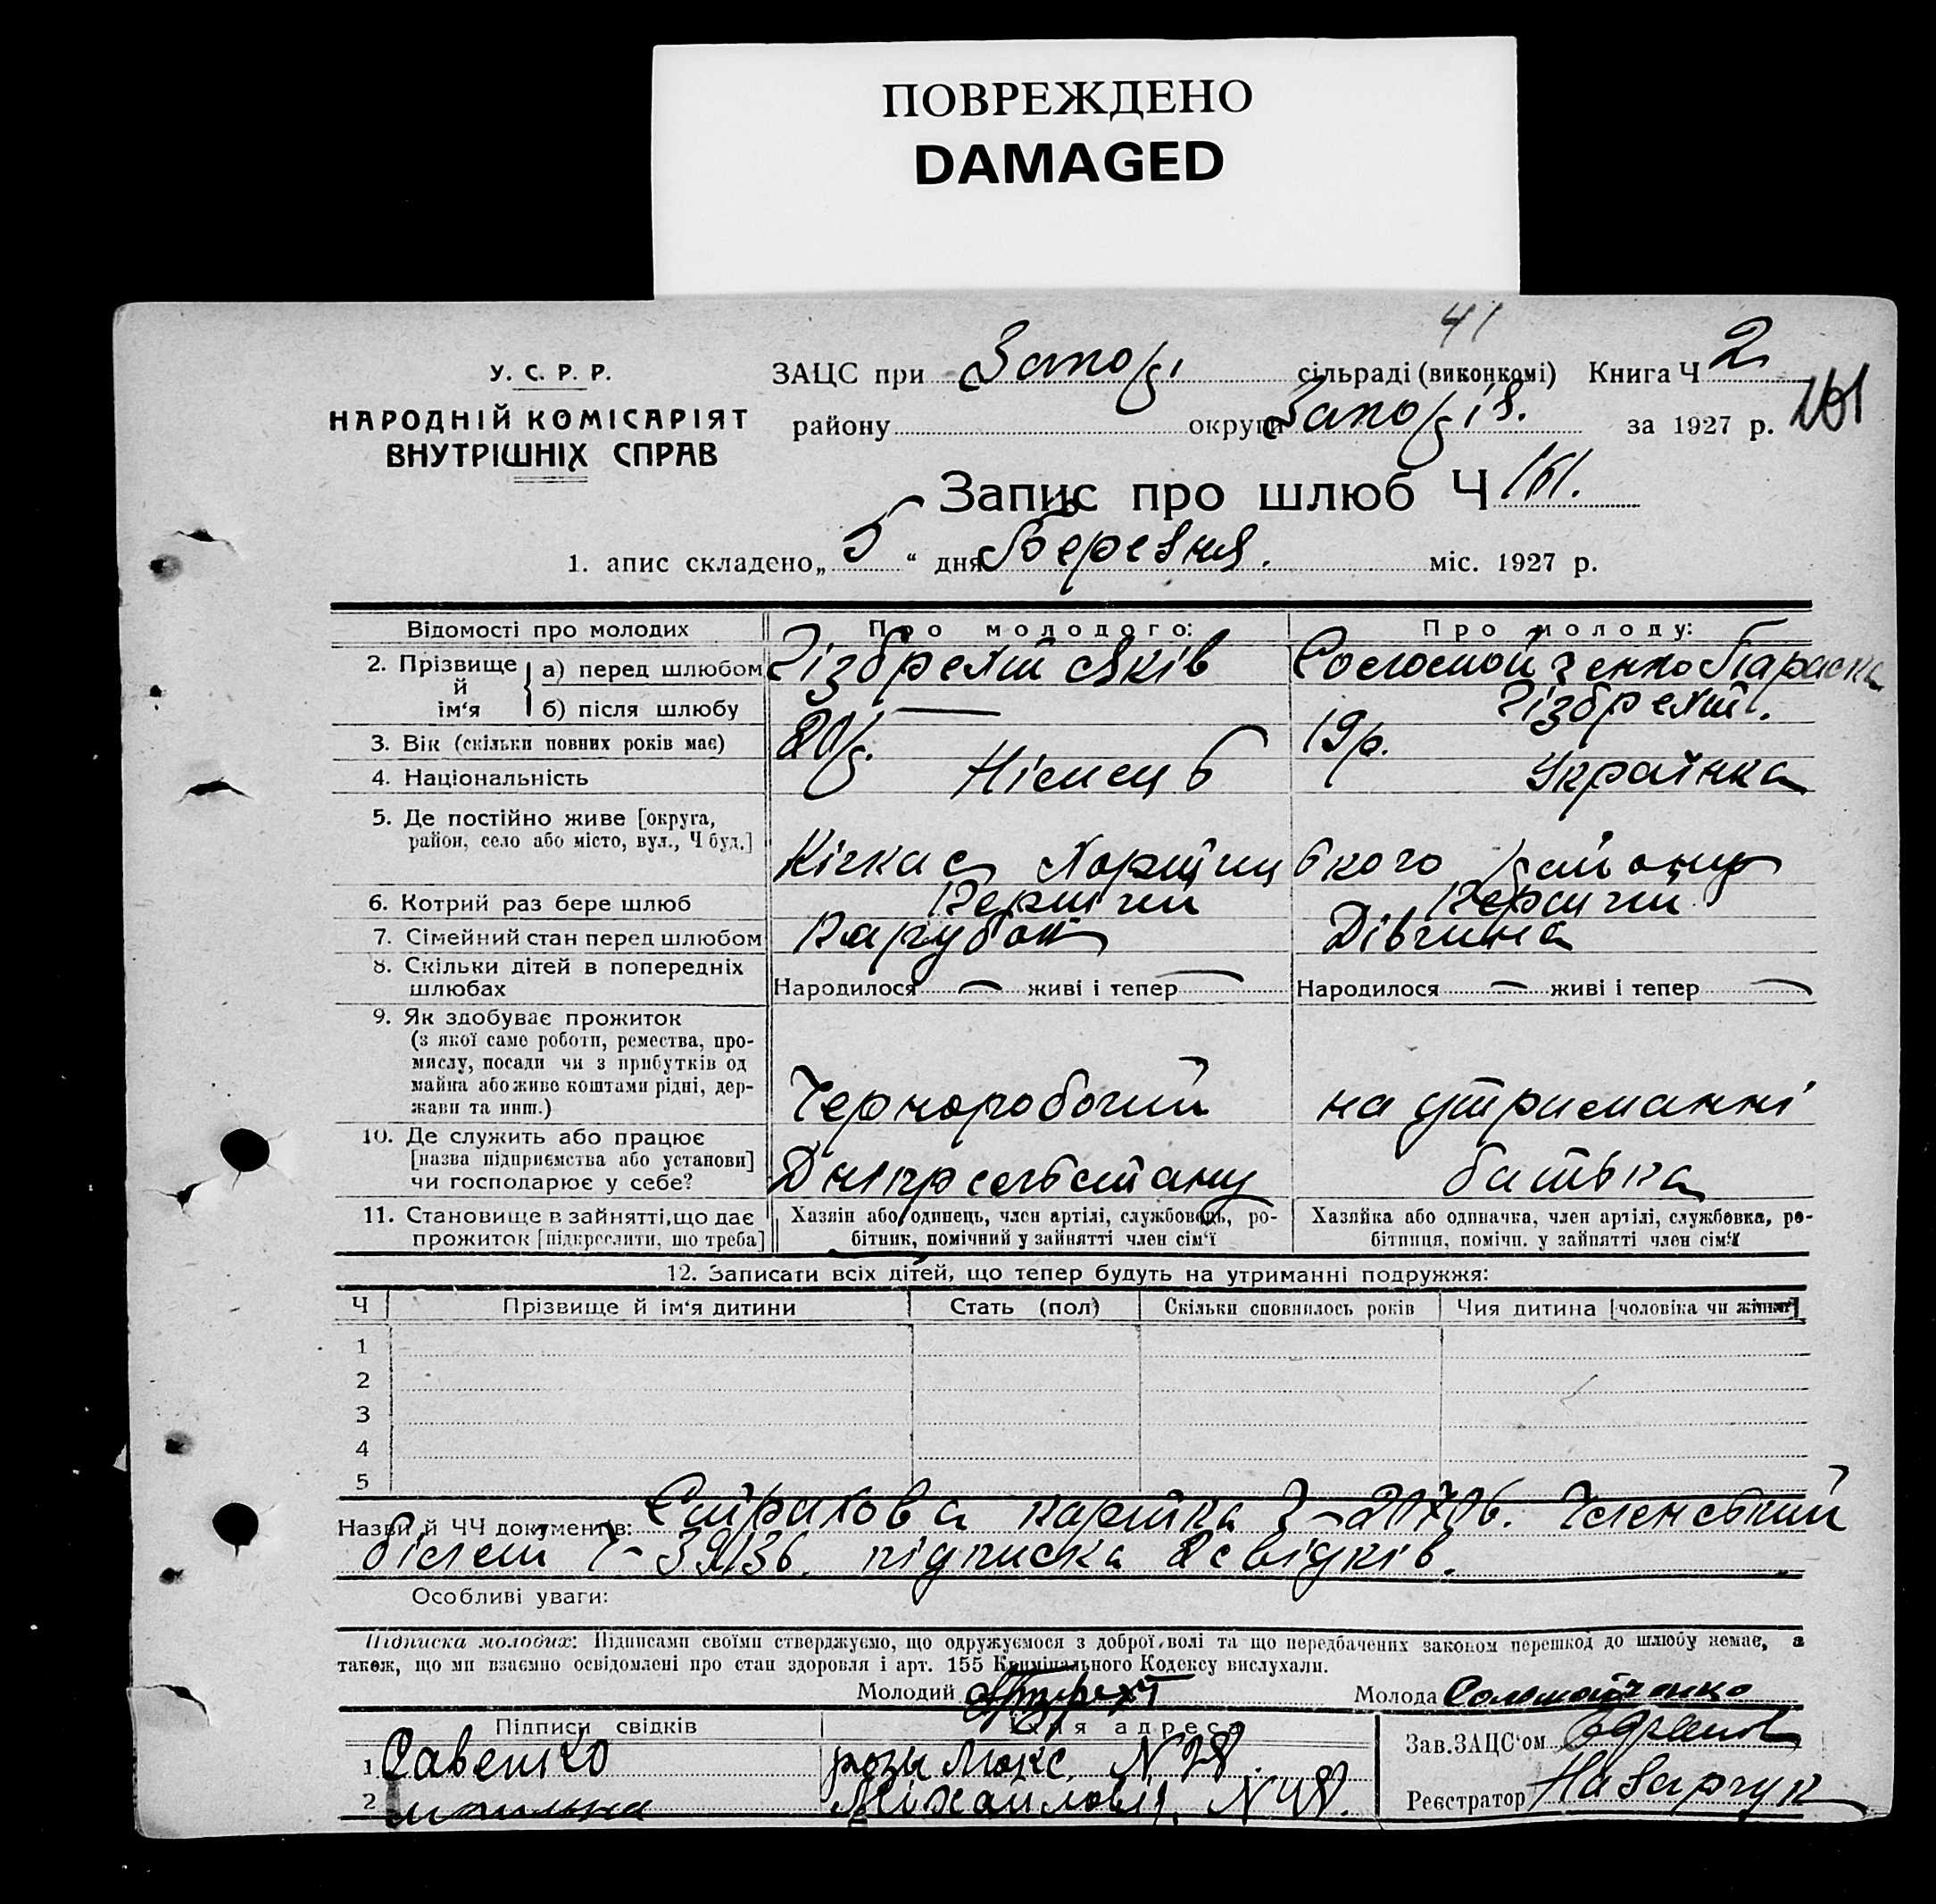 ПОВРЕЖДЕНО
DAMAGED
41
У. С. Р. Р.
НАРОДНІЙ КОМІСАРІЯТ
ВНУТРІШНІХ СПРАВ
ЗАЦС при сільраді (виконкомі) Книга Ч 2
району округи за 1927 р. 161
Запис про шлюб Ч 161.
1. апис складено „ 5 “ дня Березня. міс. 1927 р.
Відомості про молодих Про молодого: Про молоду:
2. Прізвище й ім‘я а) перед шлюбом Гізбрехт Яків Соломойченко Параска
б) після шлюбу — Гізбрехт.
3. Вік (скільки повних років має) 20р. 19р.
4. Національність Німець Українка
5. Де постійно живе [округа,
район, село або місто, вул., Ч буд.] Кічкас Хортицького району
6. Котрий раз бере шлюб Перший Перший
7. Сімейний стан перед шлюбом Парубок Дівчина
8. Скільки дітей в попередніх
шлюбах Народилося — живі і тепер — Народилося — живі і тепер —
9. Як здобуває прожиток
(з якої саме роботи, ремества, про-
мислу, посади чи з прибутків од
майна або живе коштами рідні, дер-
жави та инш.) Черноробочий на утриманні
10. Де служить або працює
[назва підприємства або установи]
чи господарює у себе? батька
11. Становище в зайнятті, що дає
прожиток [підкреслити, що треба]
Хазяін або одинець, член артілі, службовець, ро-
бітник, помічний у зайнятті член сім‘ї
Хазяйка або одиначка, член артілі, службовка, ро-
бітниця, помічн. у зайнятті член сім‘ї
12. Записати всіх дітей, що тепер будуть на утриманні подружжя:
Ч Прізвище й ім‘я дитини Стать (пол) Скільки сповнилось років Чия дитина [чоловіка чи жінки]
1
2
3
4
5
Назви й ЧЧ документів: Страхова картка Ч- Членський
білет Ч- підписка 2 свідків.
Особливі уваги:
Підписка молодих: Підписами своїми стверджуємо, що одружуємося з доброї волі та що передбачених законом перешкод до шлюбу немає, а
також, що ми взаємно освідомлені про стан здоровля і арт. 155 Кримінального Кодексу вислухали.
Молодий Молода Соломойченко
Підписи свідків Їхня адреса Зав. ЗАЦС‘ом
1 розы Люкс. N 28.
2 Михайлові N 48. Реєстратор Назарчук